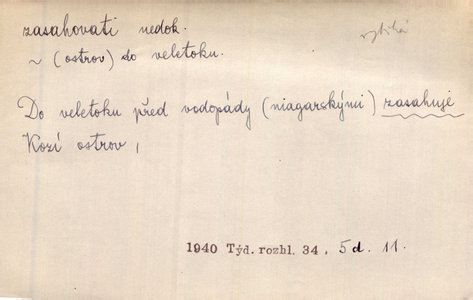 zasahovati nedok.
~ (ostrov) do veletoku.
Do veletoku před vodopády (niagarskými) zasahuje
Kozí ostrov,
1940 Týd. rozhl. 34, 5 d. 11.